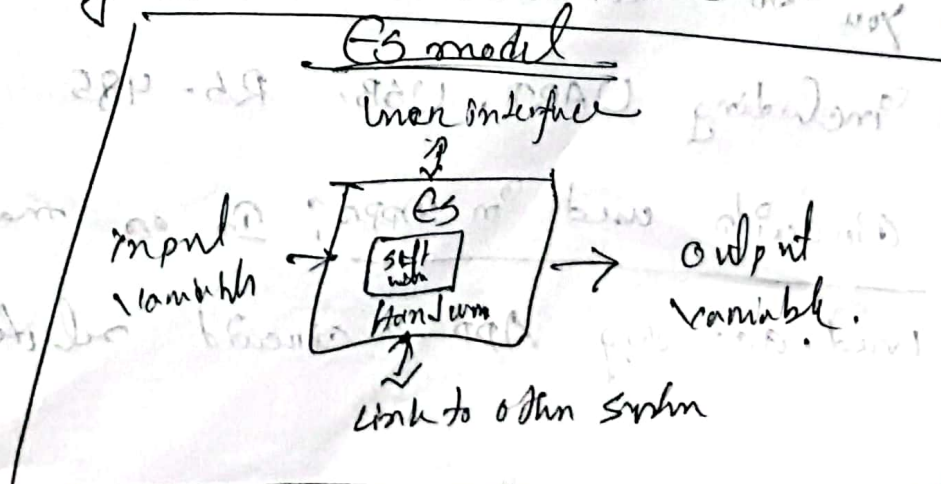 you
ES model
User interface
ES
input
variables
soft
ware
Hardware
output
variable.
Link to other system